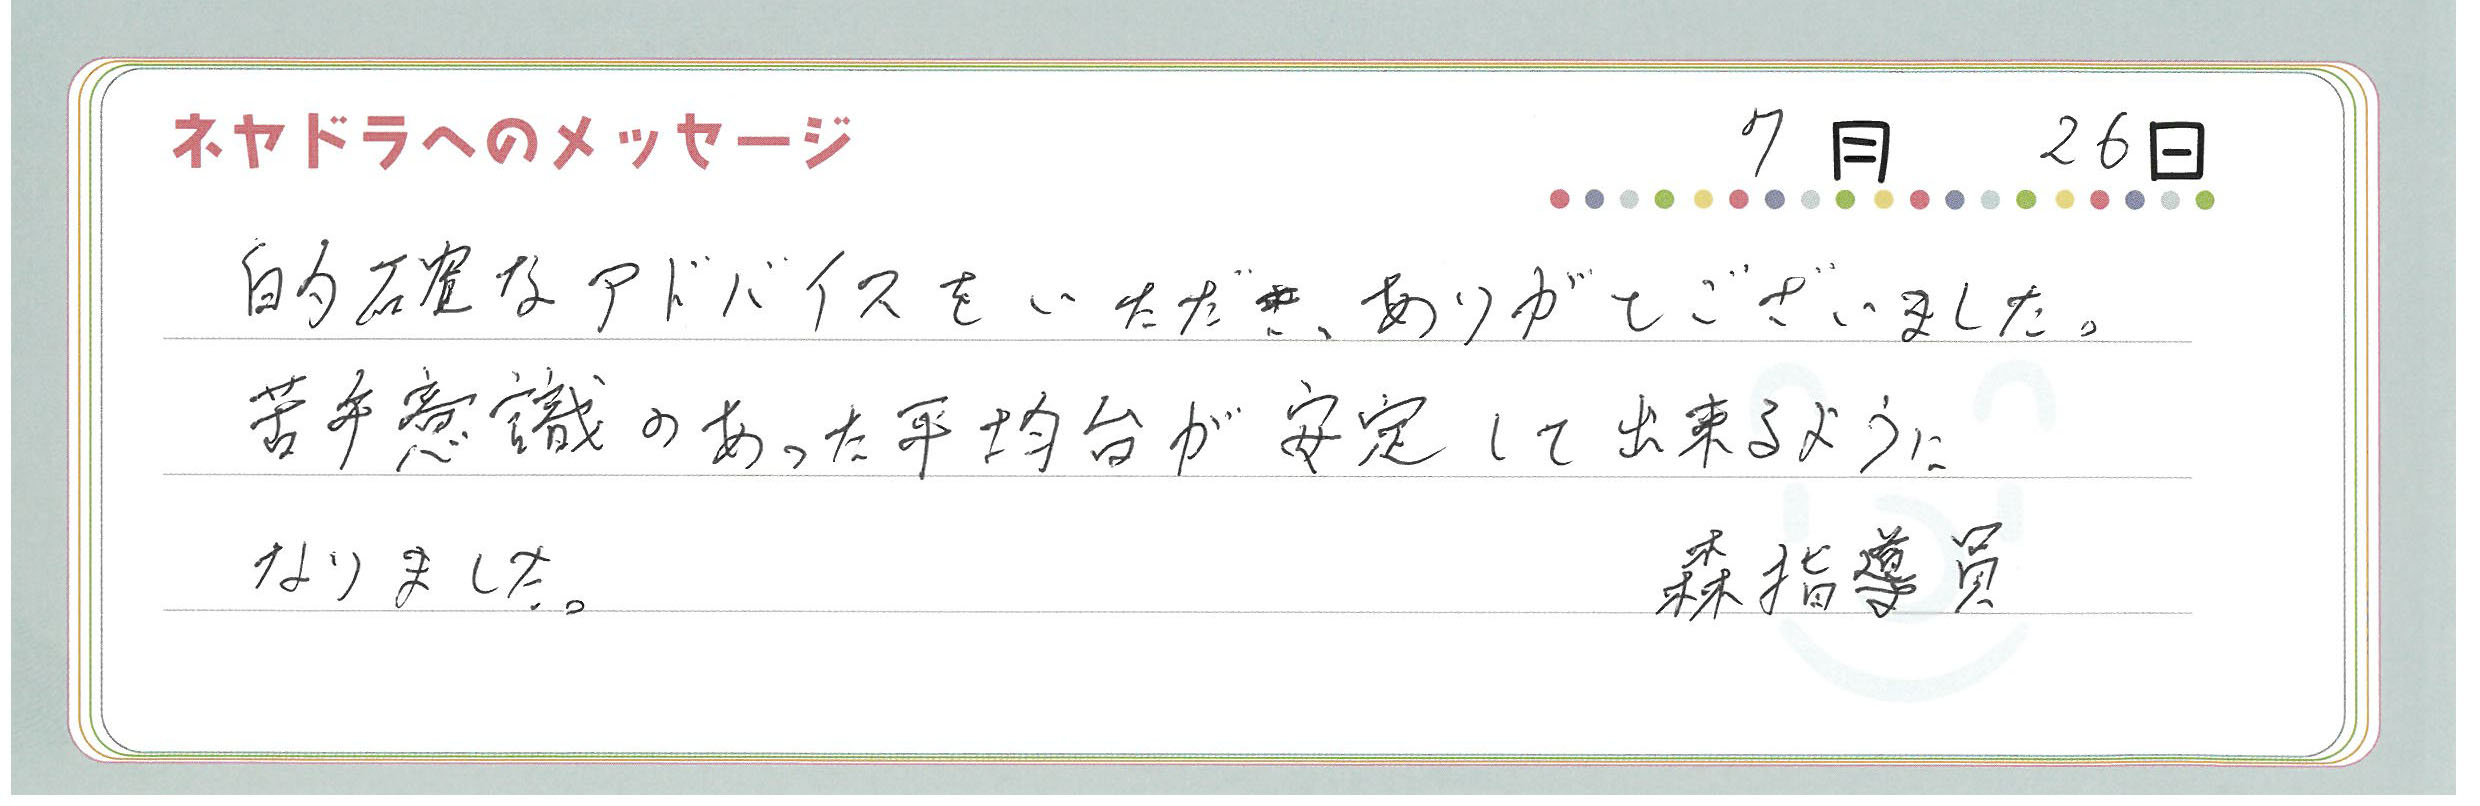 ネヤドラへのメッセージ 7月 26日
的確なアドバイスをいただき、ありがとございました。
苦手意識のあった平均台が安定して出来るように
なりました。 森指導員